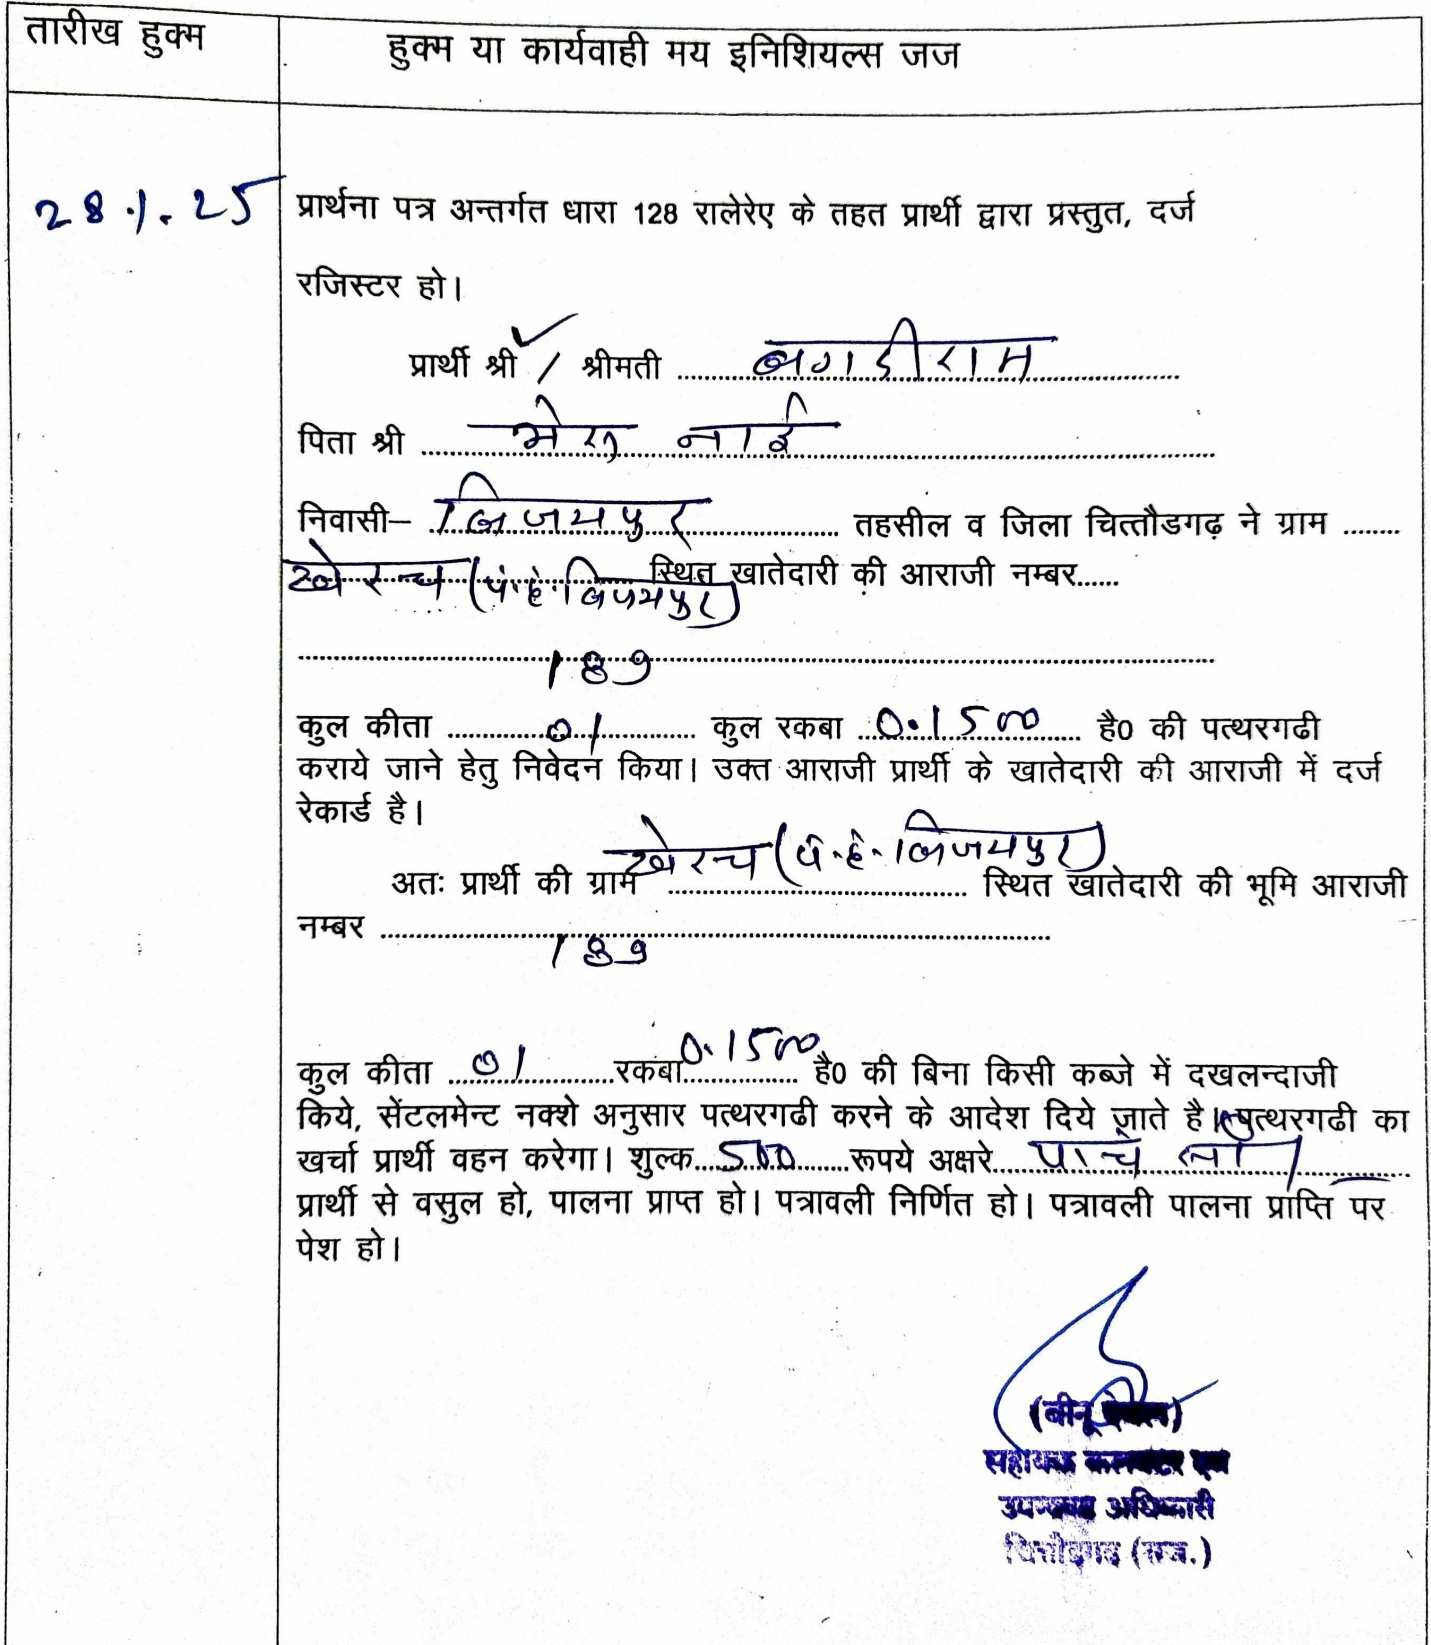 तारीख हुक्म
हुक्म या कार्यवाही मय इनिशियल्स जज
28.1.25
प्रार्थना पत्र अन्तर्गत धारा 128 रालेरेए के तहत प्रार्थी द्वारा प्रस्तुत, दर्ज
रजिस्टर हो।
प्रार्थी श्री / श्रीमती बगडीराम
पिता श्री भेरू नाई
निवासी– बिजयपुर तहसील व जिला चित्तौडगढ़ ने ग्राम
खेरच (पं.ह. बिजयपुर) स्थित खातेदारी की आराजी नम्बर......
189
कुल कीता 01 कुल रकबा 0.1500 है0 की पत्थरगढी
कराये जाने हेतु निवेदन किया। उक्त आराजी प्रार्थी के खातेदारी की आराजी में दर्ज
रेकार्ड है।
अतः प्रार्थी की ग्राम खेरच (पं.ह. बिजयपुर) स्थित खातेदारी की भूमि आराजी
नम्बर 189
कुल कीता 01 रकबा 0.1500 है0 की बिना किसी कब्जे में दखलन्दाजी
किये, सेंटलमेन्ट नक्शे अनुसार पत्थरगढी करने के आदेश दिये जाते है। पत्थरगढी का
खर्चा प्रार्थी वहन करेगा। शुल्क 500 रूपये अक्षरे पांच सौ
प्रार्थी से वसुल हो, पालना प्राप्त हो। पत्रावली निर्णित हो। पत्रावली पालना प्राप्ति पर
पेश हो।
(बीनू
सहायक कलक्टर एवं
उपखण्ड अधिकारी
चित्तौड़गढ़ (राज.)